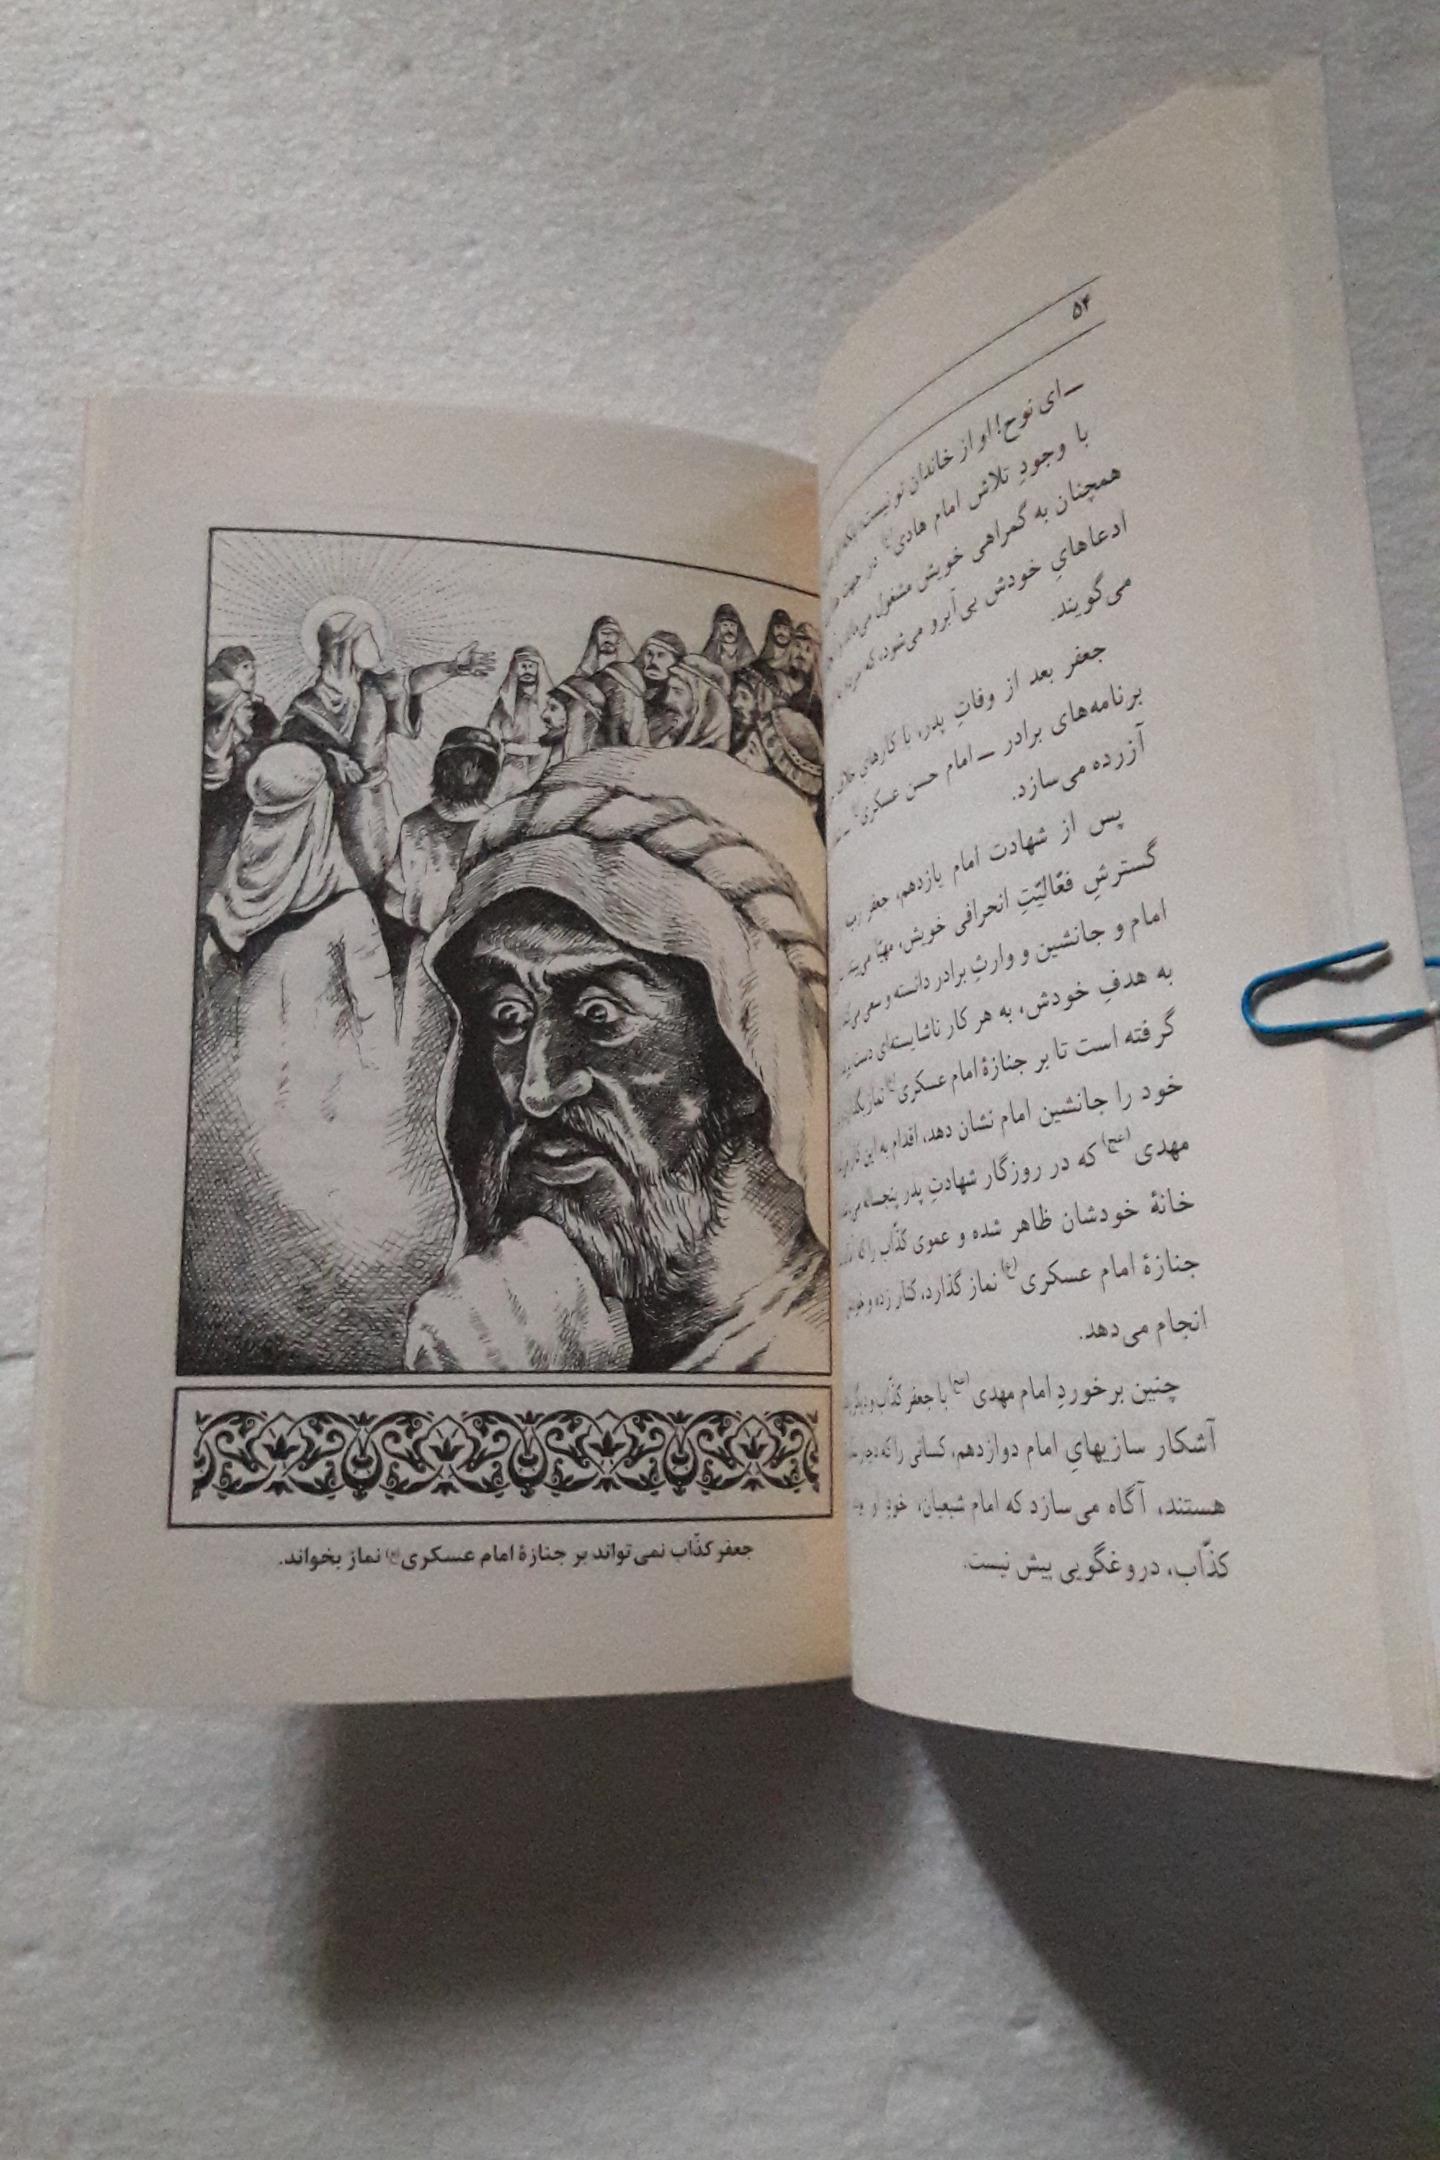 ۵۴
ــ ای نوح! او از خاندان تو نیست، بلکه
با وجودِ تلاش امام هادی(ع) در جهت
همچنان به گمراهی خویش مشغول می‌ماند
ادعاهایِ خودش بی‌آبرو می‌شود، که
می‌گویند.
جعفر بعد از وفاتِ پدر، با کارهایِ خلاف
برنامه‌های برادر ــ امام حسن عسکری(ع) ــ
آزرده می‌سازد.
پس از شهادت امام یازدهم، جعفر
گسترشِ فعّالیّتِ انحرافی خویش، مهیّا می‌بیند
امام و جانشین و وارثِ برادر دانسته و سعی می‌کند
به هدفِ خودش، به هر کار ناشایسته‌ای دست
گرفته است تا بر جنازهٔ امام عسکری(ع) نماز
خود را جانشین امام نشان دهد، اقدام به این کار
مهدی(عج) که در روزگار شهادتِ پدر پنجساله
خانهٔ خودشان ظاهر شده و عموی کذّاب را که
جنازهٔ امام عسکری(ع) نماز گذارد، کنار زده و خودش
انجام می‌دهد.
چنین برخوردِ امام مهدی(عج) با جعفر کذّاب و دیگر
آشکار سازیهایِ امام دوازدهم، کسانی را که دچار
هستند، آگاه می‌سازد که امام شیعیان، خودِ او
کذّاب، دروغگویی بیش نیست.
جعفر کذّاب نمی‌تواند بر جنازهٔ امام عسکری(ع) نماز بخواند.